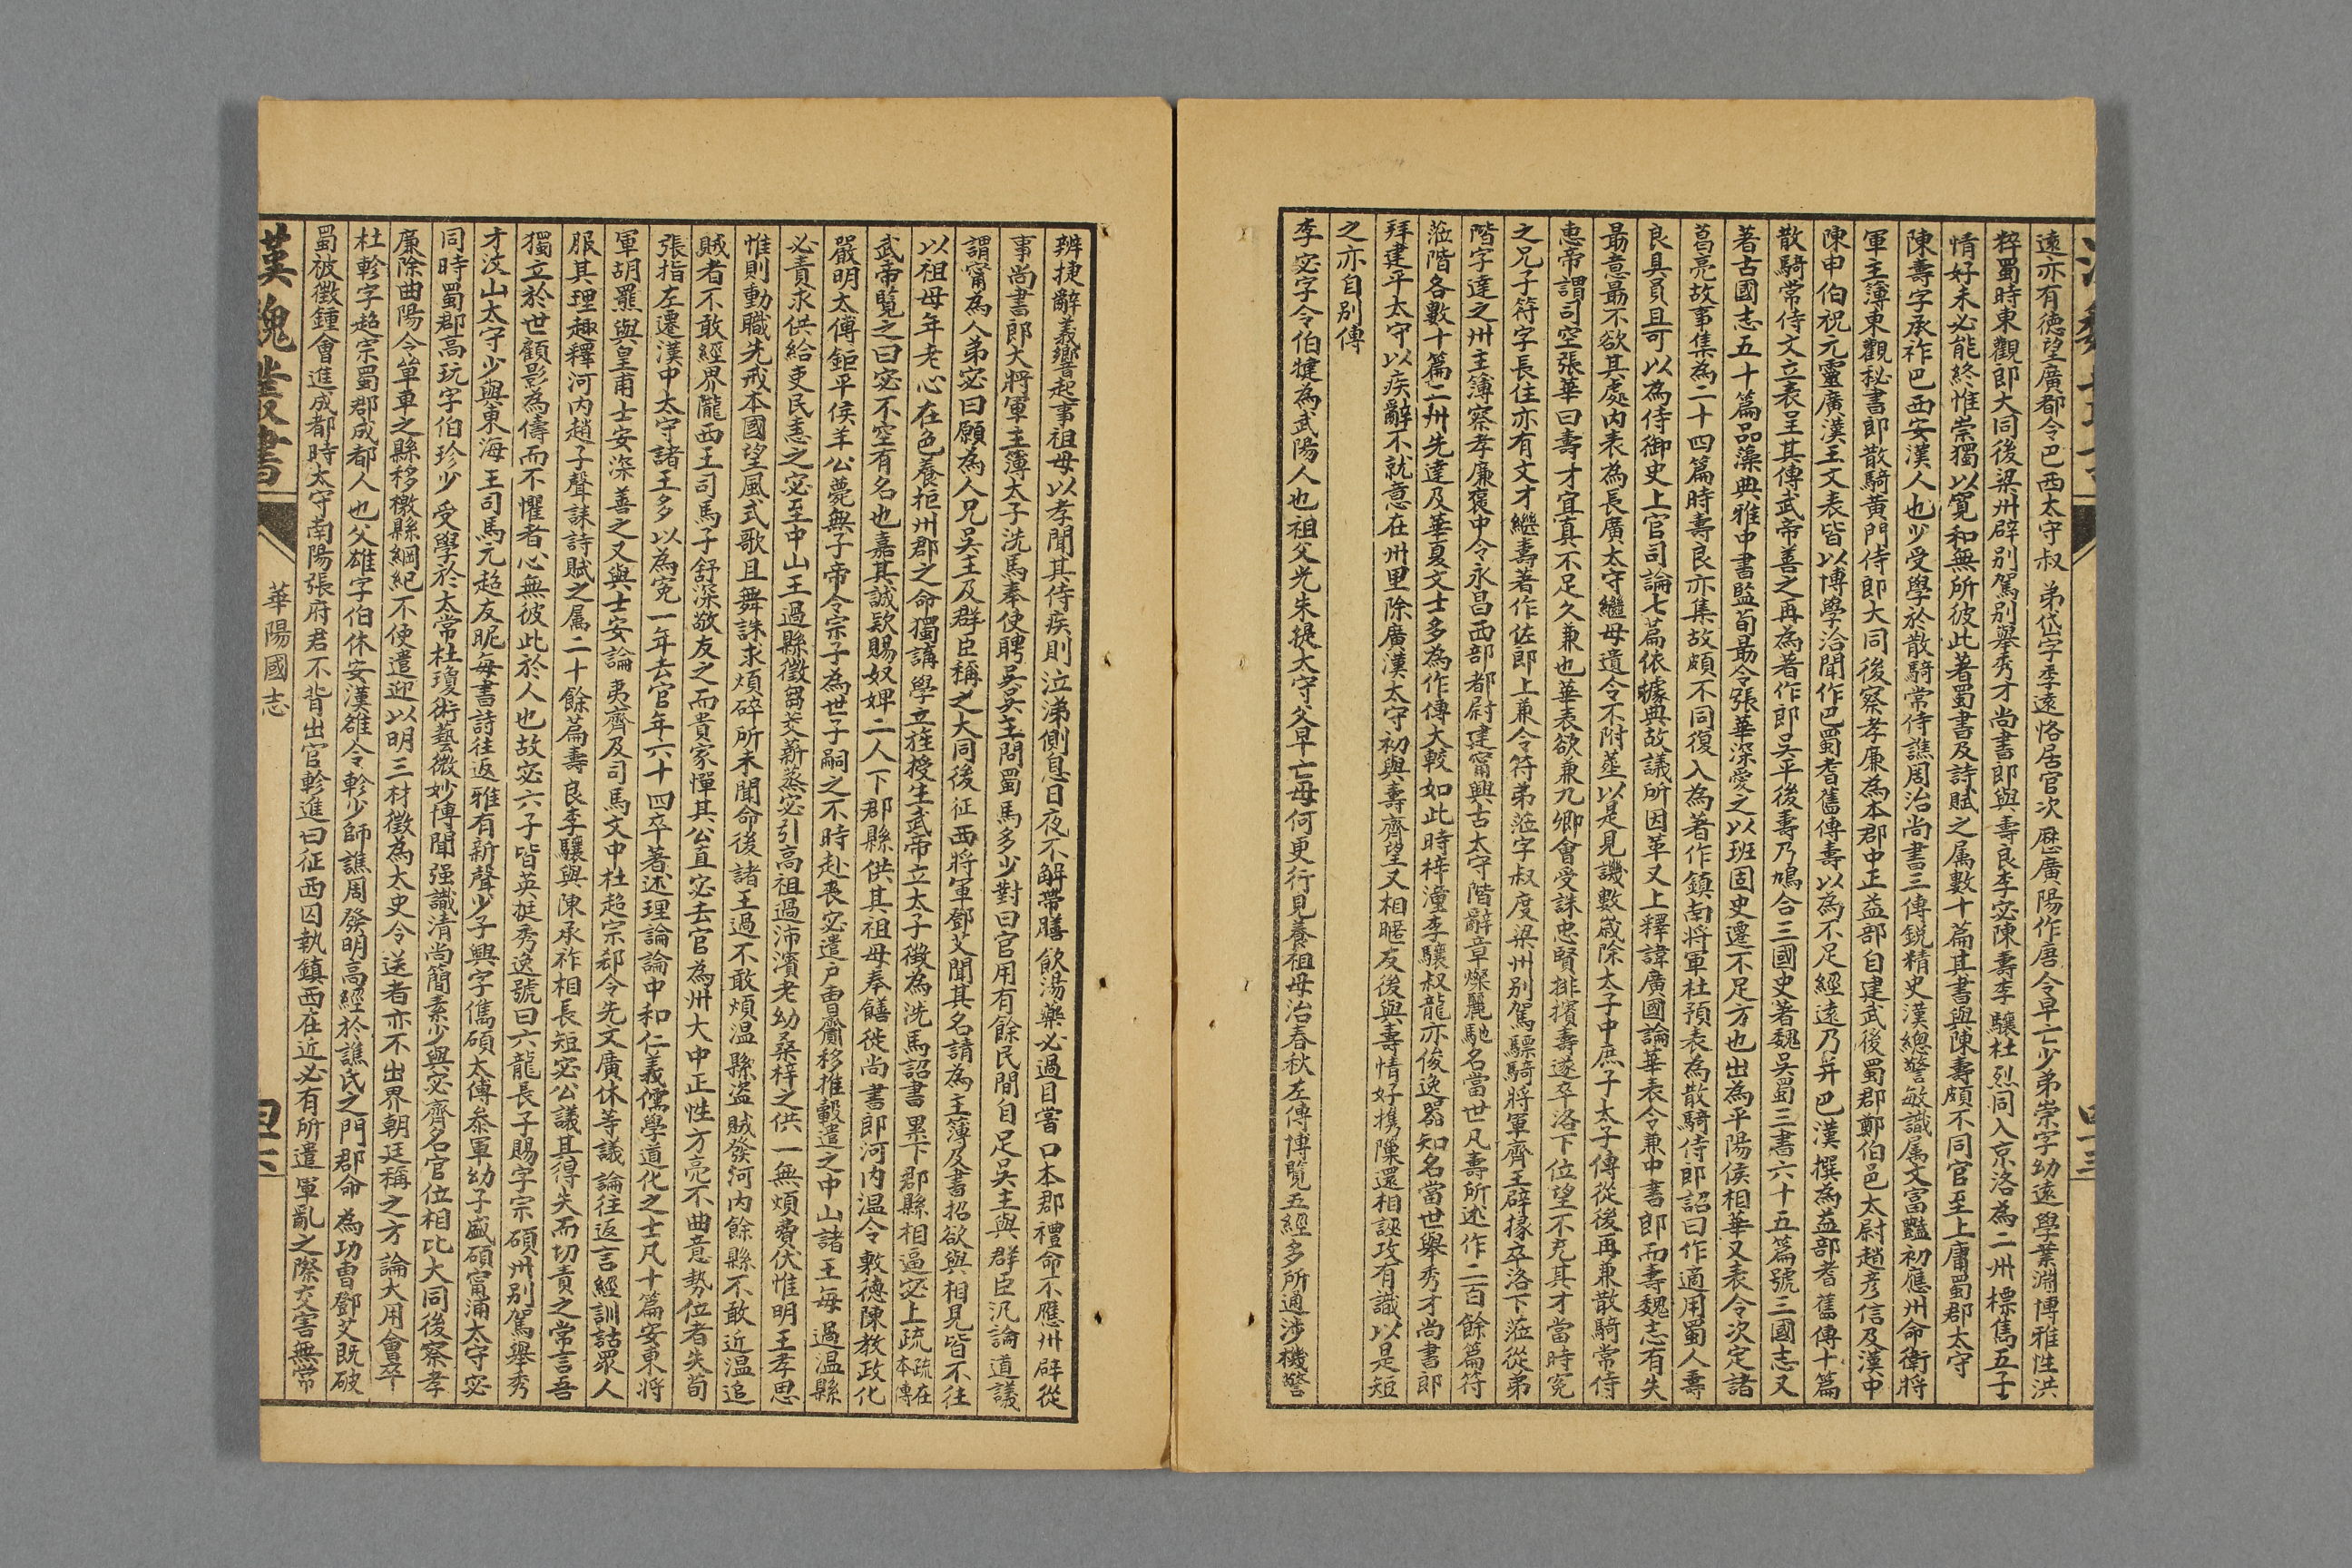 遠亦有德望廣都令巴西太守叔 弟岱字季遠恪居官次歷廣陽作唐令早亡少弟崇字幼遠學業淵博雅性洪
粹蜀時東觀郎大同後梁州辟別駕別舉秀才尚書郎與壽良李宓陳壽李驤杜烈同入京洛為二州標儁五子
情好未必能終惟崇獨以寬和無所彼此著蜀書及詩賦之属數十篇其書與陳壽頗不同官至上庸蜀郡太守
陳壽字承祚巴西安漢人也少受學於散騎常侍譙周治尚書三傳銳精史漢總警敏識属文富豔初應州命衛將
軍主簿東觀秘書郎散騎黃門侍郎大同後察孝廉為本郡中正益部自建武後蜀郡鄭伯邑太尉趙彥信及漢中
陳申伯祝元靈廣漢王文表皆以博學洽聞作巴蜀耆舊傳壽以為不足經遠乃并巴漢撰為益部耆舊傳十篇
散騎常侍文立表呈其傳武帝善之再為著作郎吳平後壽乃鳩合三國史著魏吳蜀三書六十五篇號三國志又
著古國志五十篇品藻典雅中書監荀勗令張華深愛之以班固史遷不足方也出為平陽侯相華又表令次定諸
葛亮故事集為二十四篇時壽良亦集故頗不同復入為著作鎮南將軍杜預表為散騎侍郎詔曰作適用蜀人壽
良具員且可以為侍御史上官司論七篇依據典故議所因革又上釋諱廣國論華表令兼中書郎而壽魏志有失
勗意勗不欲其處內表為長廣太守繼母遺令不附塟以是見譏數歲除太子中庶子太子傳從後再兼散騎常侍
惠帝謂司空張華曰壽才宜真不足久兼也華表欲兼九卿會受誅忠賢排擯壽遂卒洛下位望不充其才當時冤
之兄子符字長住亦有文才繼壽著作佐郎上兼令符弟蒞字叔度梁州別駕驃騎將軍齊王辟掾卒洛下蒞從弟
階字達之州主簿察孝廉褒中令永昌西部都尉建甯興古太守階辭章燦麗馳名當世凡壽所述作二百餘篇符
蒞階各數十篇二州先達及華夏文士多為作傳大較如此時梓潼李驤叔龍亦俊逸器知名當世舉秀才尚書郎
拜建平太守以疾辭不就意在州里除廣漢太守初與壽齊望又相暱友後與壽情好攜隟還相誣攻有識以是短
之亦自別傳
李宓字令伯犍為武陽人也祖父光朱提太守父早亡母何更行見養祖母治春秋左傳博覽五經多所通涉機警
辨捷辭義響起事祖母以孝聞其侍疾則泣涕側息日夜不解帶膳飲湯藥必過目嘗口本郡禮命不應州辟從
事尚書郎大將軍主簿太子洗馬奉使聘吳吳主問蜀馬多少對曰官用有餘民間自足吳主與群臣汎論道議
謂甯為人弟宓曰願為人兄吳主及群臣稱之大同後征西將軍鄧艾聞其名請為主簿及書招欲與相見皆不往
以祖母年老心在色養拒州郡之命獨講學立旌授生武帝立太子徵為洗馬詔書累下郡縣相逼宓上疏疏在本傳
武帝覽之曰宓不空有名也嘉其誠欵賜奴婢二人下郡縣供其祖母奉饍徙尚書郎河內温令敷德陳教政化
嚴明太傅鉅平侯羊公薨無子帝令宗子為世子嗣之不時赴喪宓遣戶曹齎移推轂遣之中山諸王每過温縣
必責求供給吏民恚之宓至中山王過縣徵芻茭薪蒸宓引高祖過沛濱老幼桑梓之供一無煩費伏惟明王孝思
惟則動職先戒本國望風式歌且舞誅求煩碎所未聞命後諸王過不敢煩温縣盜賊發河內餘縣不敢近温追
賊者不敢經界隴西王司馬子舒深敬友之而貴家憚其公直宓去官為州大中正性方亮不曲意勢位者失荀
張指左遷漢中太守諸王多以為冤一年去官年六十四卒著述理論論中和仁義儒學道化之士凡十篇安東將
軍胡羆與皇甫士安深善之又與士安論夷齊及司馬文中杜超宗郄令先文廣休等議論往返言經訓詁眾人
服其理趣釋河內趙子聲誄詩賦之属二十餘篇壽良李驤與陳承祚相長短宓公議其得失而切責之常言吾
獨立於世顧影為儔而不懼者心無彼此於人也故宓六子皆英挺秀逸號曰六龍長子賜字宗碩州別駕舉秀
才汶山太守少與東海王司馬元超友昵每書詩往返雅有新聲少子興字儁碩太傅叅軍幼子盛碩甯浦太守宓
同時蜀郡高玩字伯珍少受學於太常杜瓊術藝微妙博聞强識清尚簡素少與宓齊名官位相比大同後察孝
廉除曲陽令單車之縣移檄縣綱紀不使遣迎以明三材徵為太史令送者亦不出界朝廷稱之方論大用會卒
杜軫字超宗蜀郡成都人也父雄字伯休安漢雒令軫少師譙周發明高經於譙氏之門郡命為功曹鄧艾既破
蜀被徵鍾會進成都時太守南陽張府君不肯出官軫進曰征西囚執鎮西在近必有所遣軍亂之際交害無常
漢魏叢書
華陽國志